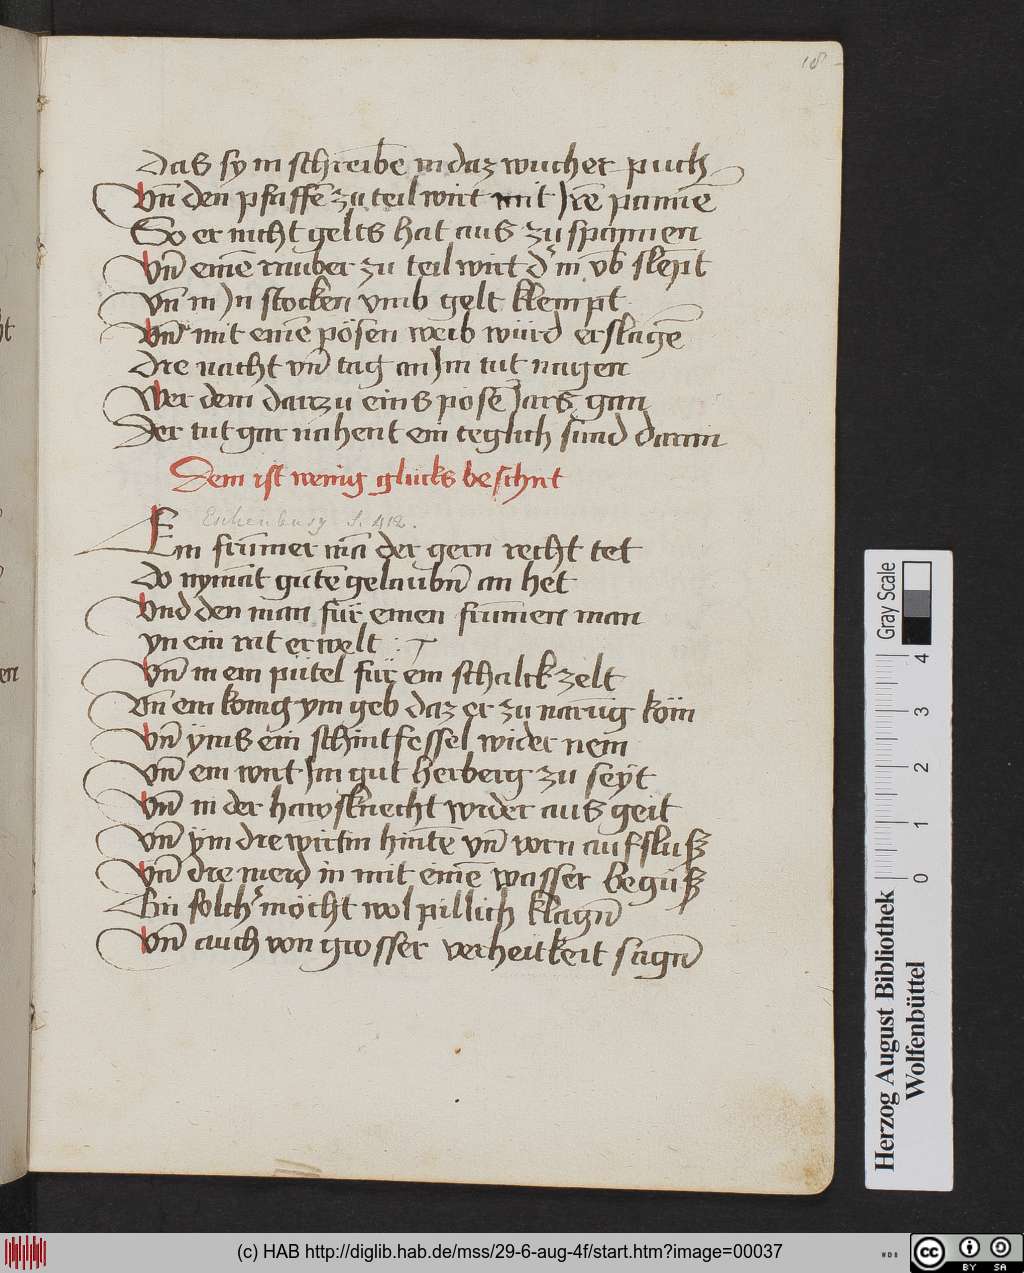 18
Das sy in schreibē in daz wucher puch
Vn̄ den pfaffē zu teil wirt mit Jrē pannē
So er nicht gelts hat aus zu spannen
Vn̄ einē rauber zu teil wirt d' in vb slept
Vn̄ in Jn stocken vmb gelt klempt
Vn̄ mit einē pösen weib würd erslagē
Die nacht vn̄ tag an Jm tut nagen
Wer dem darzu eins posē Jars gan
Der tut gar nahent ein teglich sund daran
Dem ist wenig glucks beschert
Eschenburg S. 412.
Ein frumer mā der gern recht tet
Do nymāt gutē gelaubn̄ an het
Vnd den man für einen frumen man
yn ein rat erwelt
Vn̄ in ein pütel für ein schalck zelt
Vn̄ ein konig ym geb daz er zu narūg köm
Vn̄ yms ein schintfessel wider nem
Vn̄ ein wirt Jm gut herberg zu seyt
Vn̄ in der hawsknecht wider aus geit
Vn̄ ym die wirtin hintē vn̄ vorn aufslusz
Vn̄ die meid in mit einē wasser begusz
Ein solch' möcht wol pillich klagn̄
Vn̄ auch von grosser verheitkeit sagn̄
Gray Scale
0 1 2 3 4
Herzog August Bibliothek
Wolfenbüttel
(c) HAB http://diglib.hab.de/mss/29-6-aug-4f/start.htm?image=00037
WDB
cc BY SA